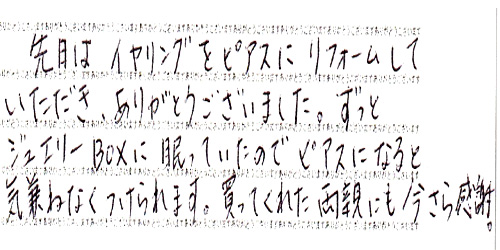 先日は イヤリングをピアスに リフォームして
いただき、ありがとうございました。ずっと
ジュエリーBOXに 眠っていたので ピアスになると
気兼ねなくつけられます。買ってくれた両親にも今さら感謝。